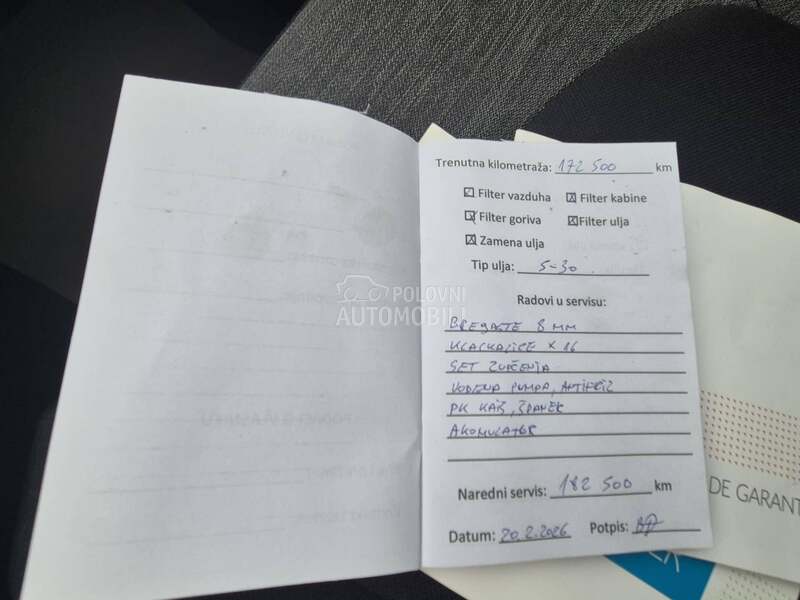 Trenutna kilometraža: 172 500 km
Filter vazduha Filter kabine
Filter goriva Filter ulja
Zamena ulja
Tip ulja: 5-30
Radovi u servisu:
BREGASTE 8 MM
KLACKALICE X 16
SET ZUPČENJA
VODENA PUMPA, ANTIFRIZ
PK KAIŠ, ŠPANER
AKUMULATOR
Naredni servis: 182 500 km
Datum: 20.2.2026 Potpis:
POLOVNI
AUTOMOBILI
DE GARANT